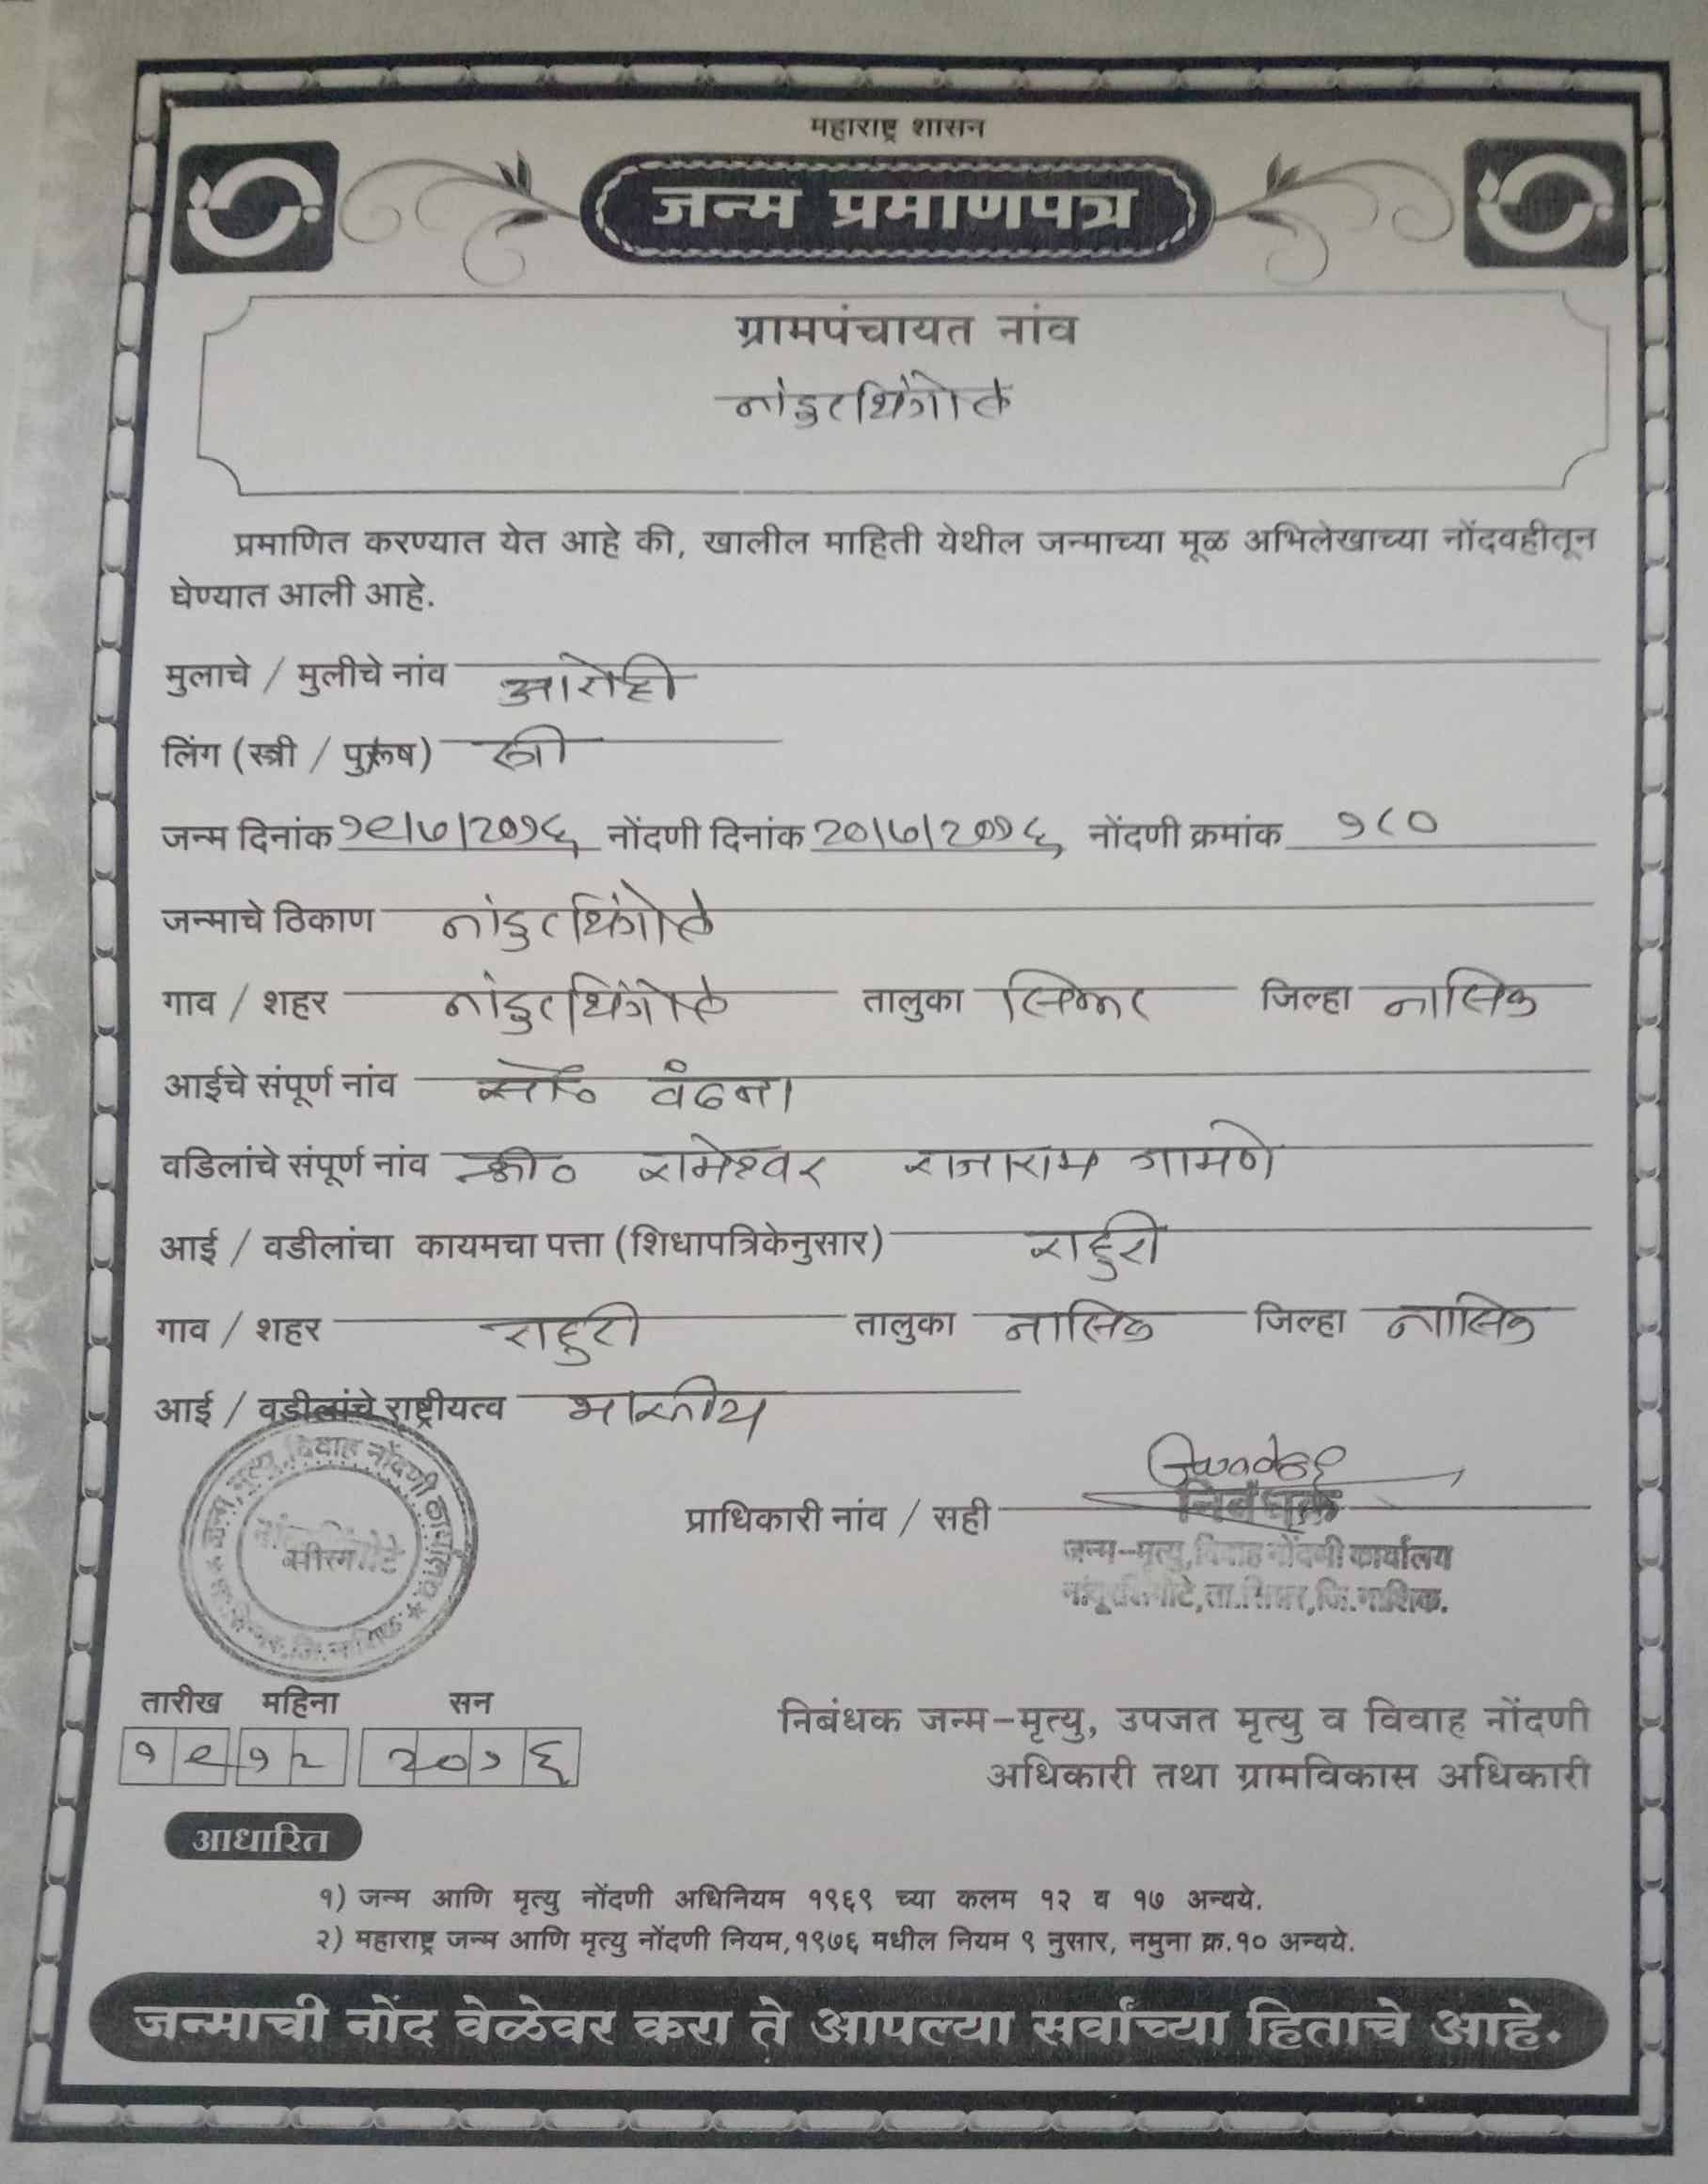 महाराष्ट्र शासन
जन्म प्रमाणपत्र
ग्रामपंचायत नांव
नांदुरशिंगोटे
प्रमाणित करण्यात येत आहे की, खालील माहिती येथील जन्माच्या मूळ अभिलेखाच्या नोंदवहीतून
घेण्यात आली आहे.
मुलाचे / मुलीचे नांव आरोही
लिंग (स्त्री / पुरूष) स्त्री
जन्म दिनांक १९/७/२०१६ नोंदणी दिनांक २०/७/२०१६ नोंदणी क्रमांक १८०
जन्माचे ठिकाण नांदुरशिंगोटे
गाव / शहर नांदुरशिंगोटे तालुका सिन्नर जिल्हा नासिक
आईचे संपूर्ण नांव सौ० वंदना
वडिलांचे संपूर्ण नांव श्री० रामेश्वर राजाराम गामणे
आई / वडीलांचा कायमचा पत्ता (शिधापत्रिकेनुसार) राहुरी
गाव / शहर राहुरी तालुका नासिक जिल्हा नासिक
आई / वडीलांचे राष्ट्रीयत्व भारतीय
जन्म, मृत्यु, विवाह नोंदणी कार्यालय
ता. सिन्नर, जि. नाशिक
प्राधिकारी नांव / सही
निबंधक
जन्म-मृत्यु, विवाह नोंदणी कार्यालय
नांदूरशिंगोटे, ता.सिन्नर, जि.नाशिक.
तारीख महिना सन
१९ १२ २०१६
निबंधक जन्म-मृत्यु, उपजत मृत्यु व विवाह नोंदणी
अधिकारी तथा ग्रामविकास अधिकारी
आधारित
१) जन्म आणि मृत्यु नोंदणी अधिनियम १९६९ च्या कलम १२ व १७ अन्वये.
२) महाराष्ट्र जन्म आणि मृत्यु नोंदणी नियम,१९७६ मधील नियम ९ नुसार, नमुना क्र.१० अन्वये.
जन्माची नोंद वेळेवर करा ते आपल्या सर्वांच्या हिताचे आहे.